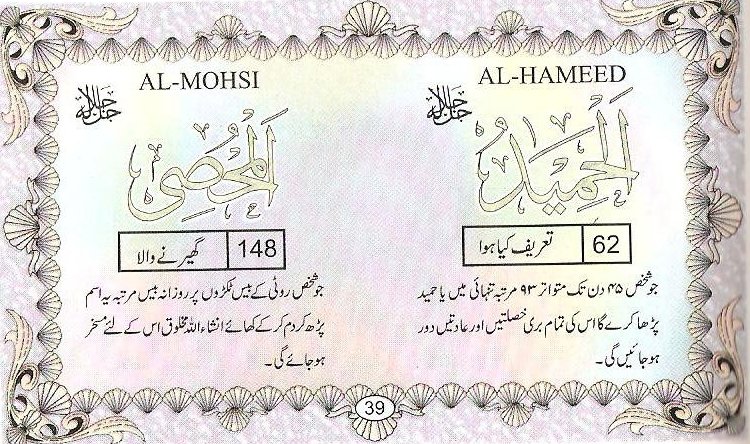 AL-HAMEED
جل جلالہ
الْحَمِيدُ
62
تعریف کیا ہوا
جو شخص ۴۵ دن تک متواتر ۹۳ مرتبہ تنہائی میں یا حمید
پڑھا کرے گا اس کی تمام بری خصلتیں اور عادتیں دور
ہو جائیں گی۔
AL-MOHSI
جل جلالہ
الْمُحْصِي
148
گھیرنے والا
جو شخص روٹی کے بیس ٹکڑوں پر روزانہ بیس مرتبہ یہ اسم
پڑھ کر دم کر کے کھائے انشاء اللہ مخلوق اس کے لئے مسخر
ہو جائے گی۔
39